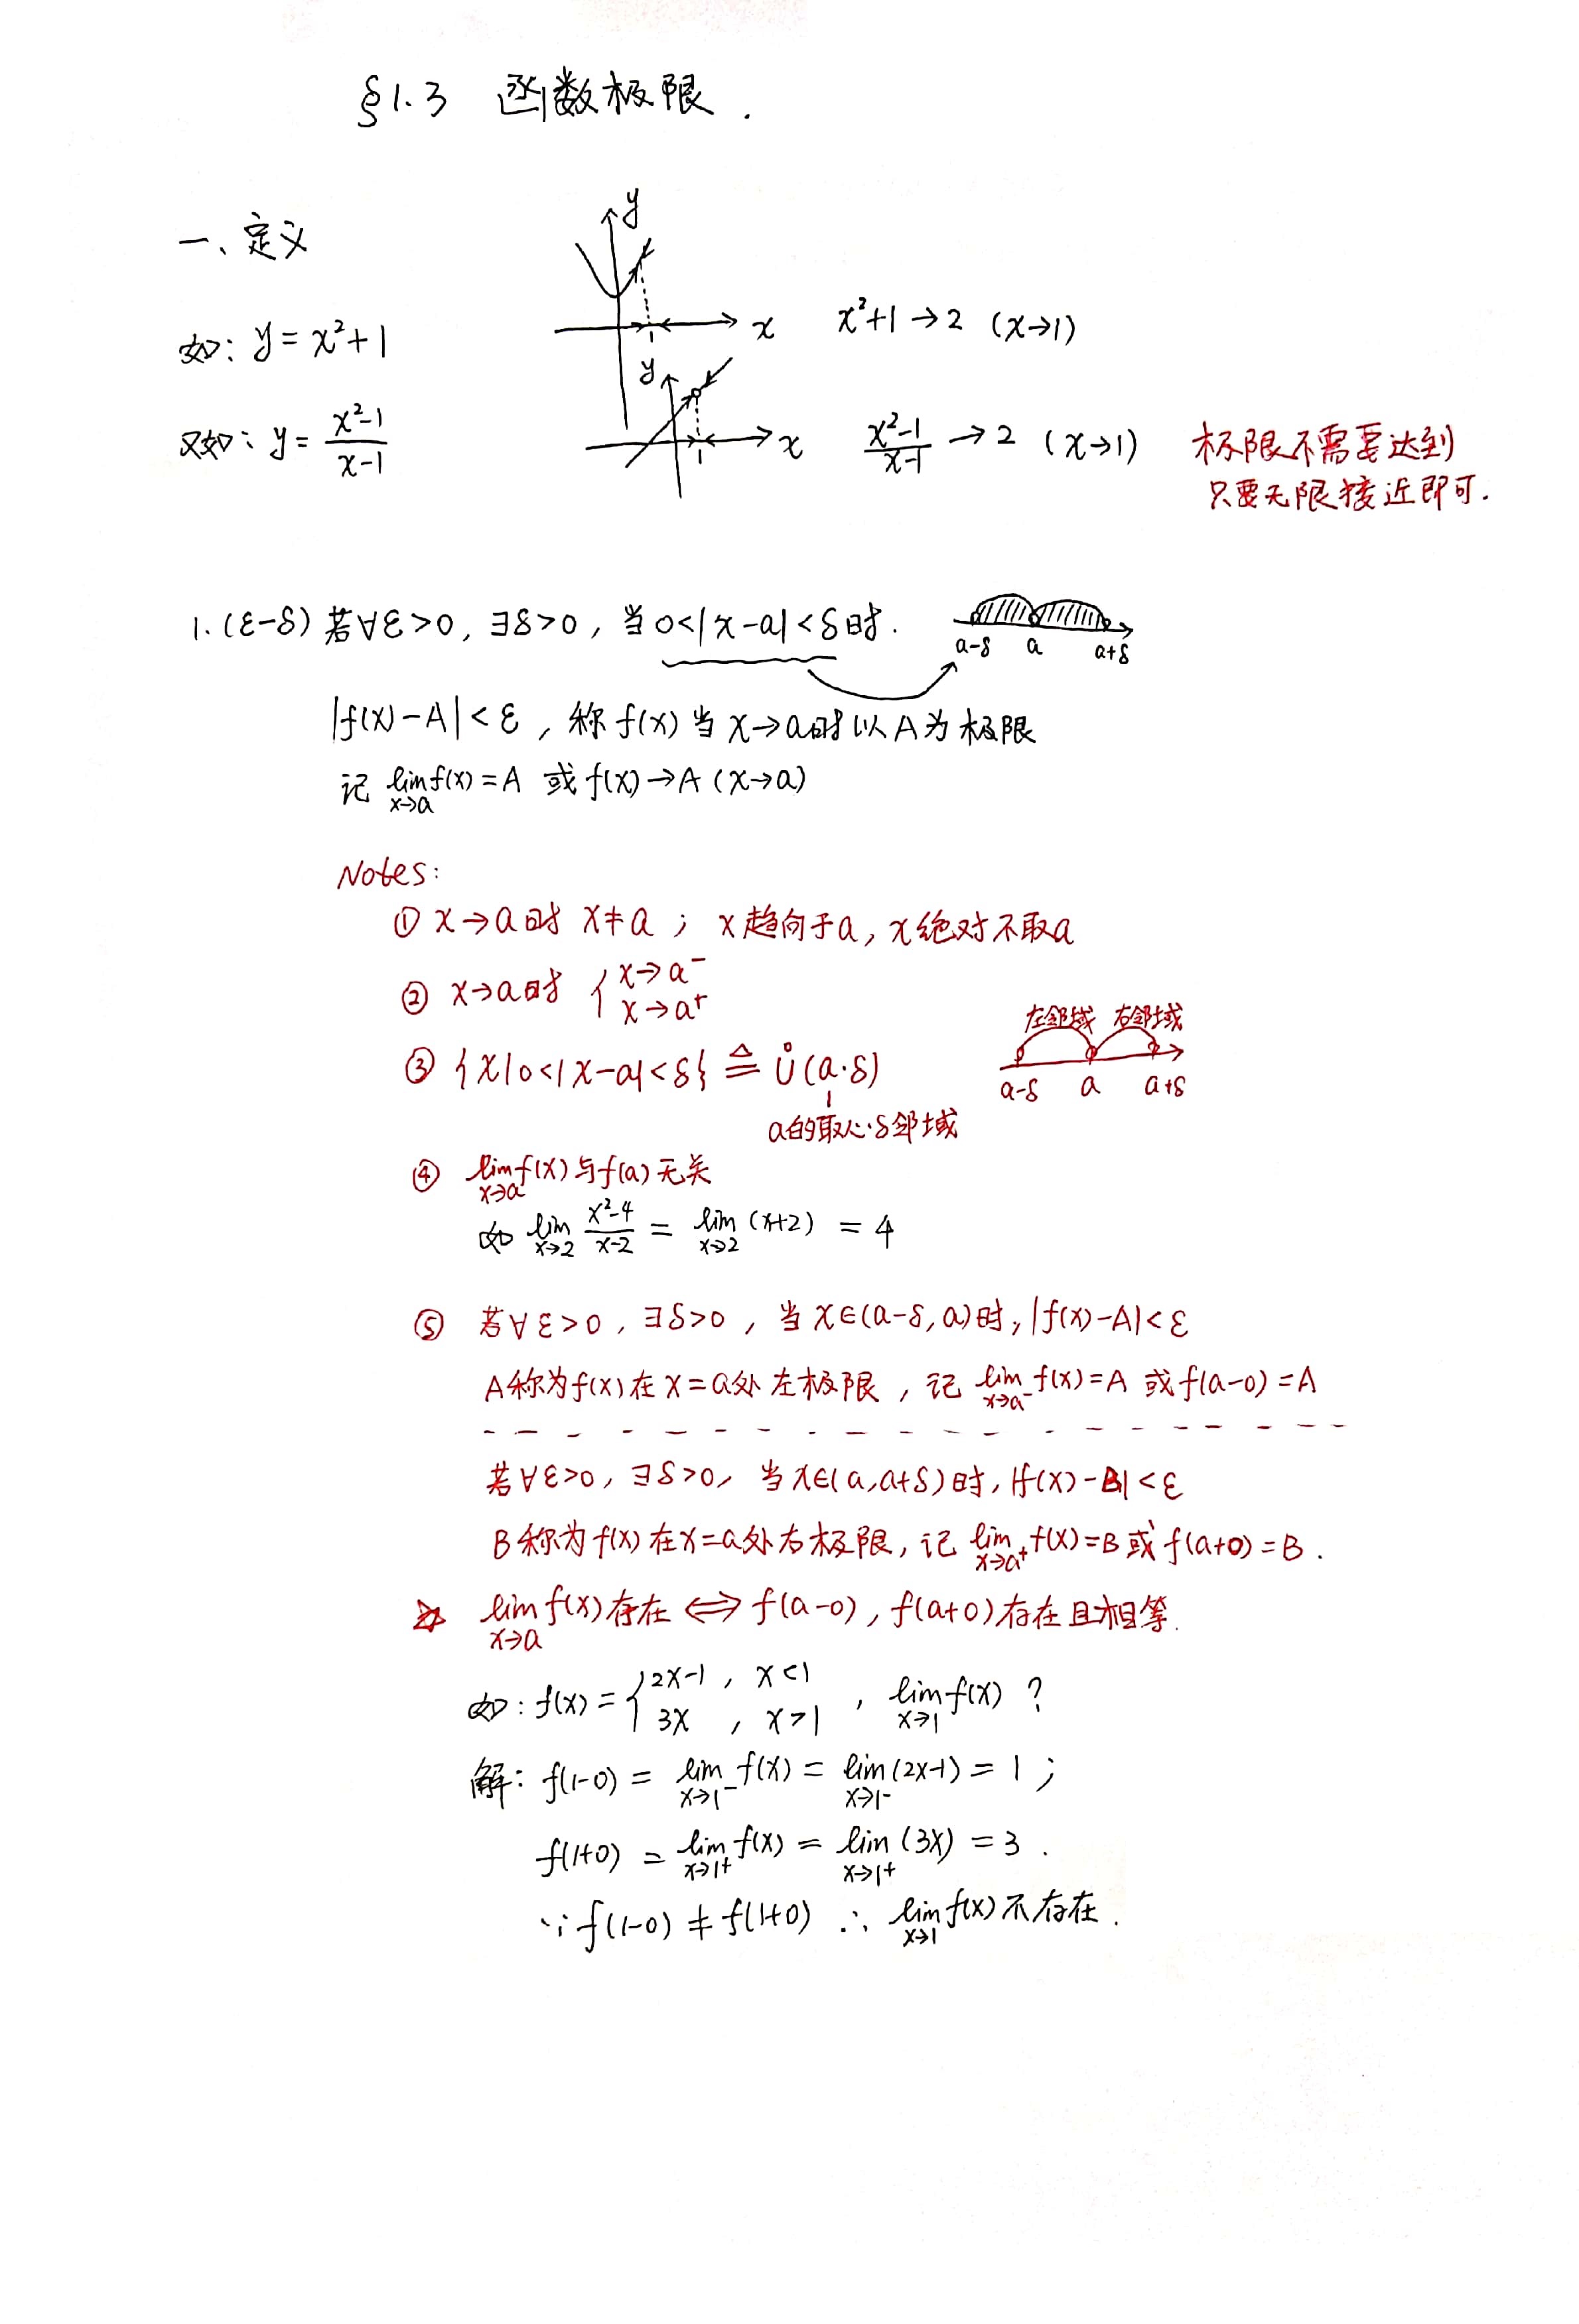 §1.3 函数极限.
一、定义
y
如: y = x²+1
x
1
x²+1 → 2 (x→1)
y
又如: y = (x²-1)/(x-1)
x
1
(x²-1)/(x-1) → 2 (x→1)
极限不需要达到
只要无限接近即可.
1. (ε-δ) 若∀ε>0, ∃δ>0, 当 0<|x-a|<δ时.
a-δ a a+δ
|f(x)-A|<ε, 称f(x)当x→a时以A为极限
记 lim_{x→a} f(x)=A 或 f(x)→A (x→a)
Notes:
① x→a时 x≠a; x趋向于a, x绝对不取a
② x→a时 { x→a⁻
x→a⁺
左邻域 右邻域
③ {x|0<|x-a|<δ} ≜ Ů(a·δ)
a-δ a a+δ
a的取心δ邻域
④ lim_{x→a} f(x)与f(a)无关
如 lim_{x→2} (x²-4)/(x-2) = lim_{x→2} (x+2) = 4
⑤ 若∀ε>0, ∃δ>0, 当x∈(a-δ,a)时, |f(x)-A|<ε
A称为f(x)在x=a处左极限, 记 lim_{x→a⁻} f(x)=A 或 f(a-0)=A
若∀ε>0, ∃δ>0, 当x∈(a,a+δ)时, |f(x)-B|<ε
B称为f(x)在x=a处右极限, 记 lim_{x→a⁺} f(x)=B或f(a+0)=B.
☆ lim_{x→a} f(x)存在 ⟺ f(a-0), f(a+0)存在且相等.
如: f(x)= { 2x-1, x<1
3x, x>1 , lim_{x→1} f(x) ?
解: f(1-0) = lim_{x→1⁻} f(x) = lim_{x→1⁻} (2x-1) = 1;
f(1+0) = lim_{x→1⁺} f(x) = lim_{x→1⁺} (3x) = 3.
∵ f(1-0) ≠ f(1+0) ∴ lim_{x→1} f(x)不存在.